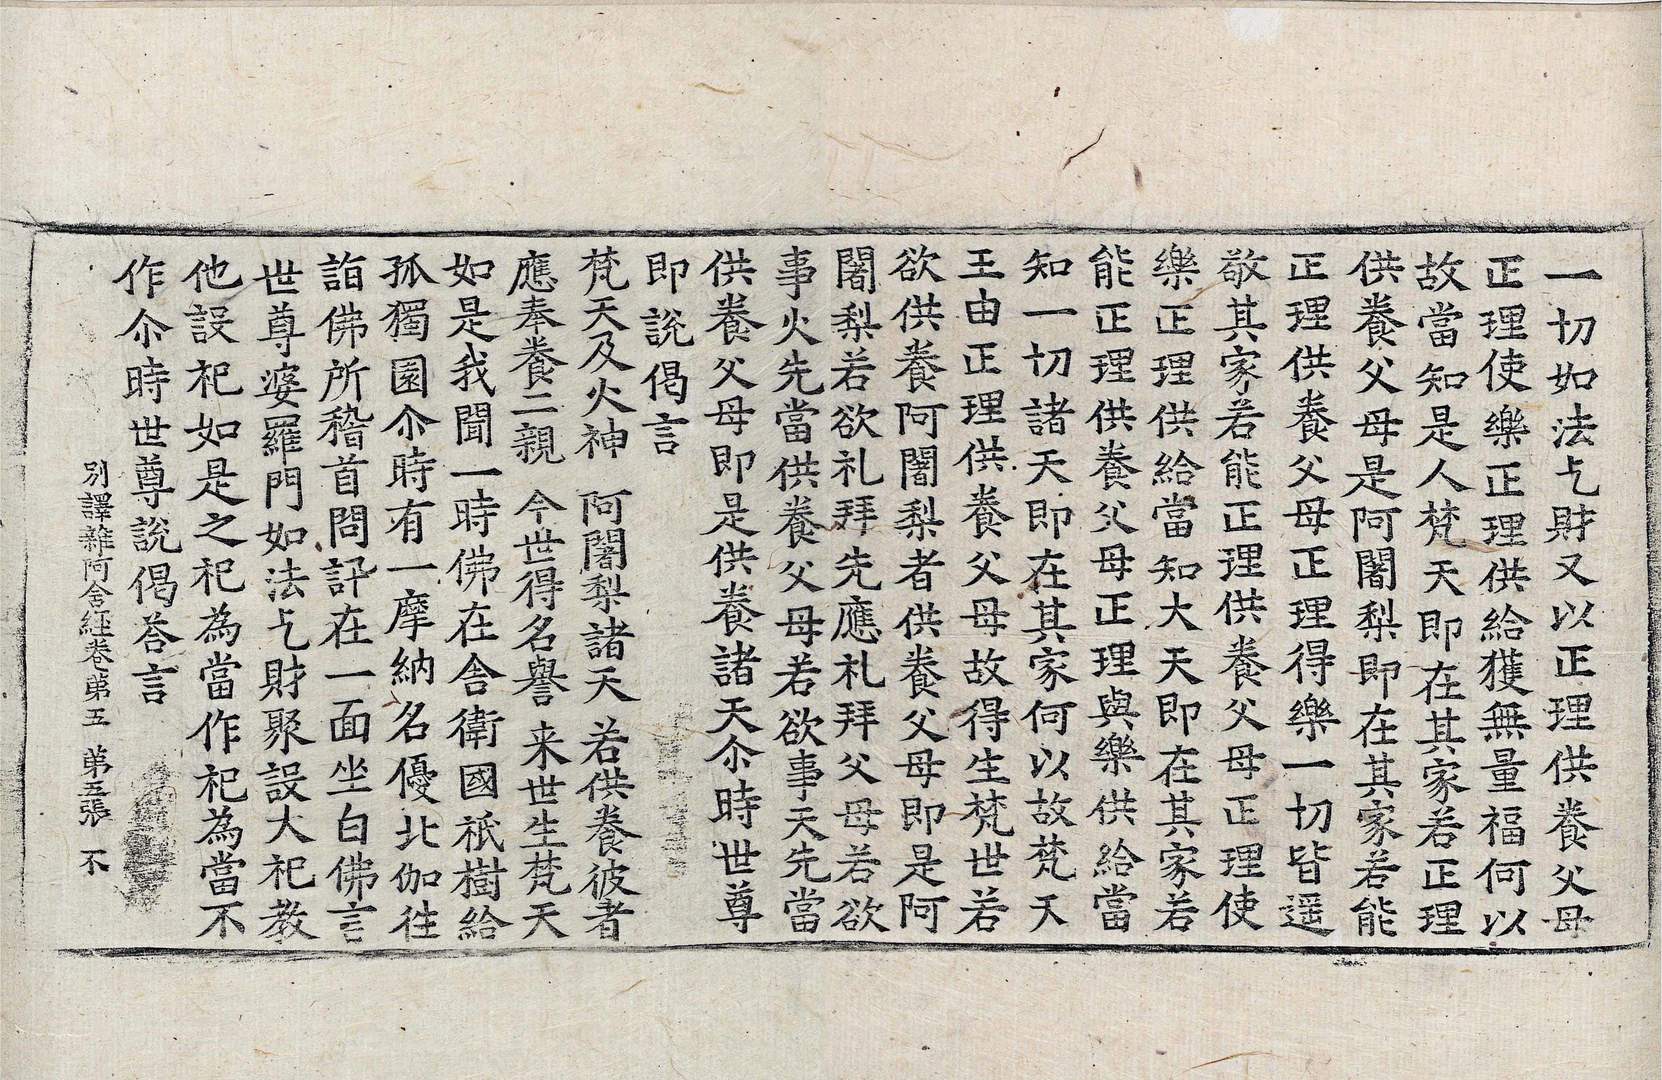 一切如法乞財又以正理供養父母
正理使樂正理供給獲無量福何以
故當知是人梵天即在其家若正理
供養父母是阿闍梨即在其家若能
正理供養父母正理得樂一切皆遥
敬其家若能正理供養父母正理使
樂正理供給當知大天即在其家若
能正理供養父母正理與樂供給當
知一切諸天即在其家何以故梵天
王由正理供養父母故得生梵世若
欲供養阿闍梨者供養父母即是阿
闍梨若欲礼拜先應礼拜父母若欲
事火先當供養父母若欲事天先當
供養父母即是供養諸天尒時世尊
即說偈言
梵天及火神 阿闍梨諸天 若供養彼者
應奉養二親 今世得名譽 来世生梵天
如是我聞一時佛在舍衛國祇樹給
孤獨園尒時有一摩納名優北伽往
詣佛所稽首問訊在一面坐白佛言
世尊婆羅門如法乞財聚設大祀教
他設祀如是之祀為當作祀為當不
作尒時世尊說偈荅言
別譯雜阿含經卷第五 第五張 不